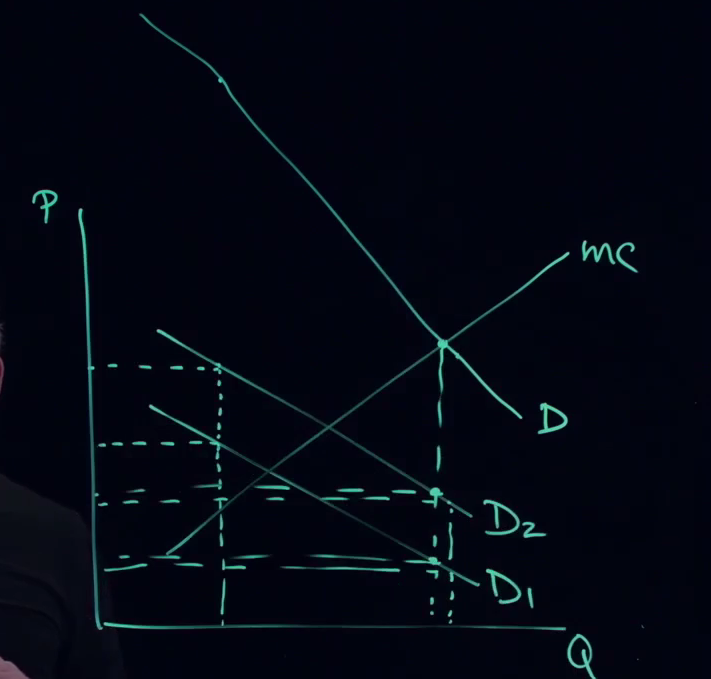 P
MC
D
D2
D1
Q